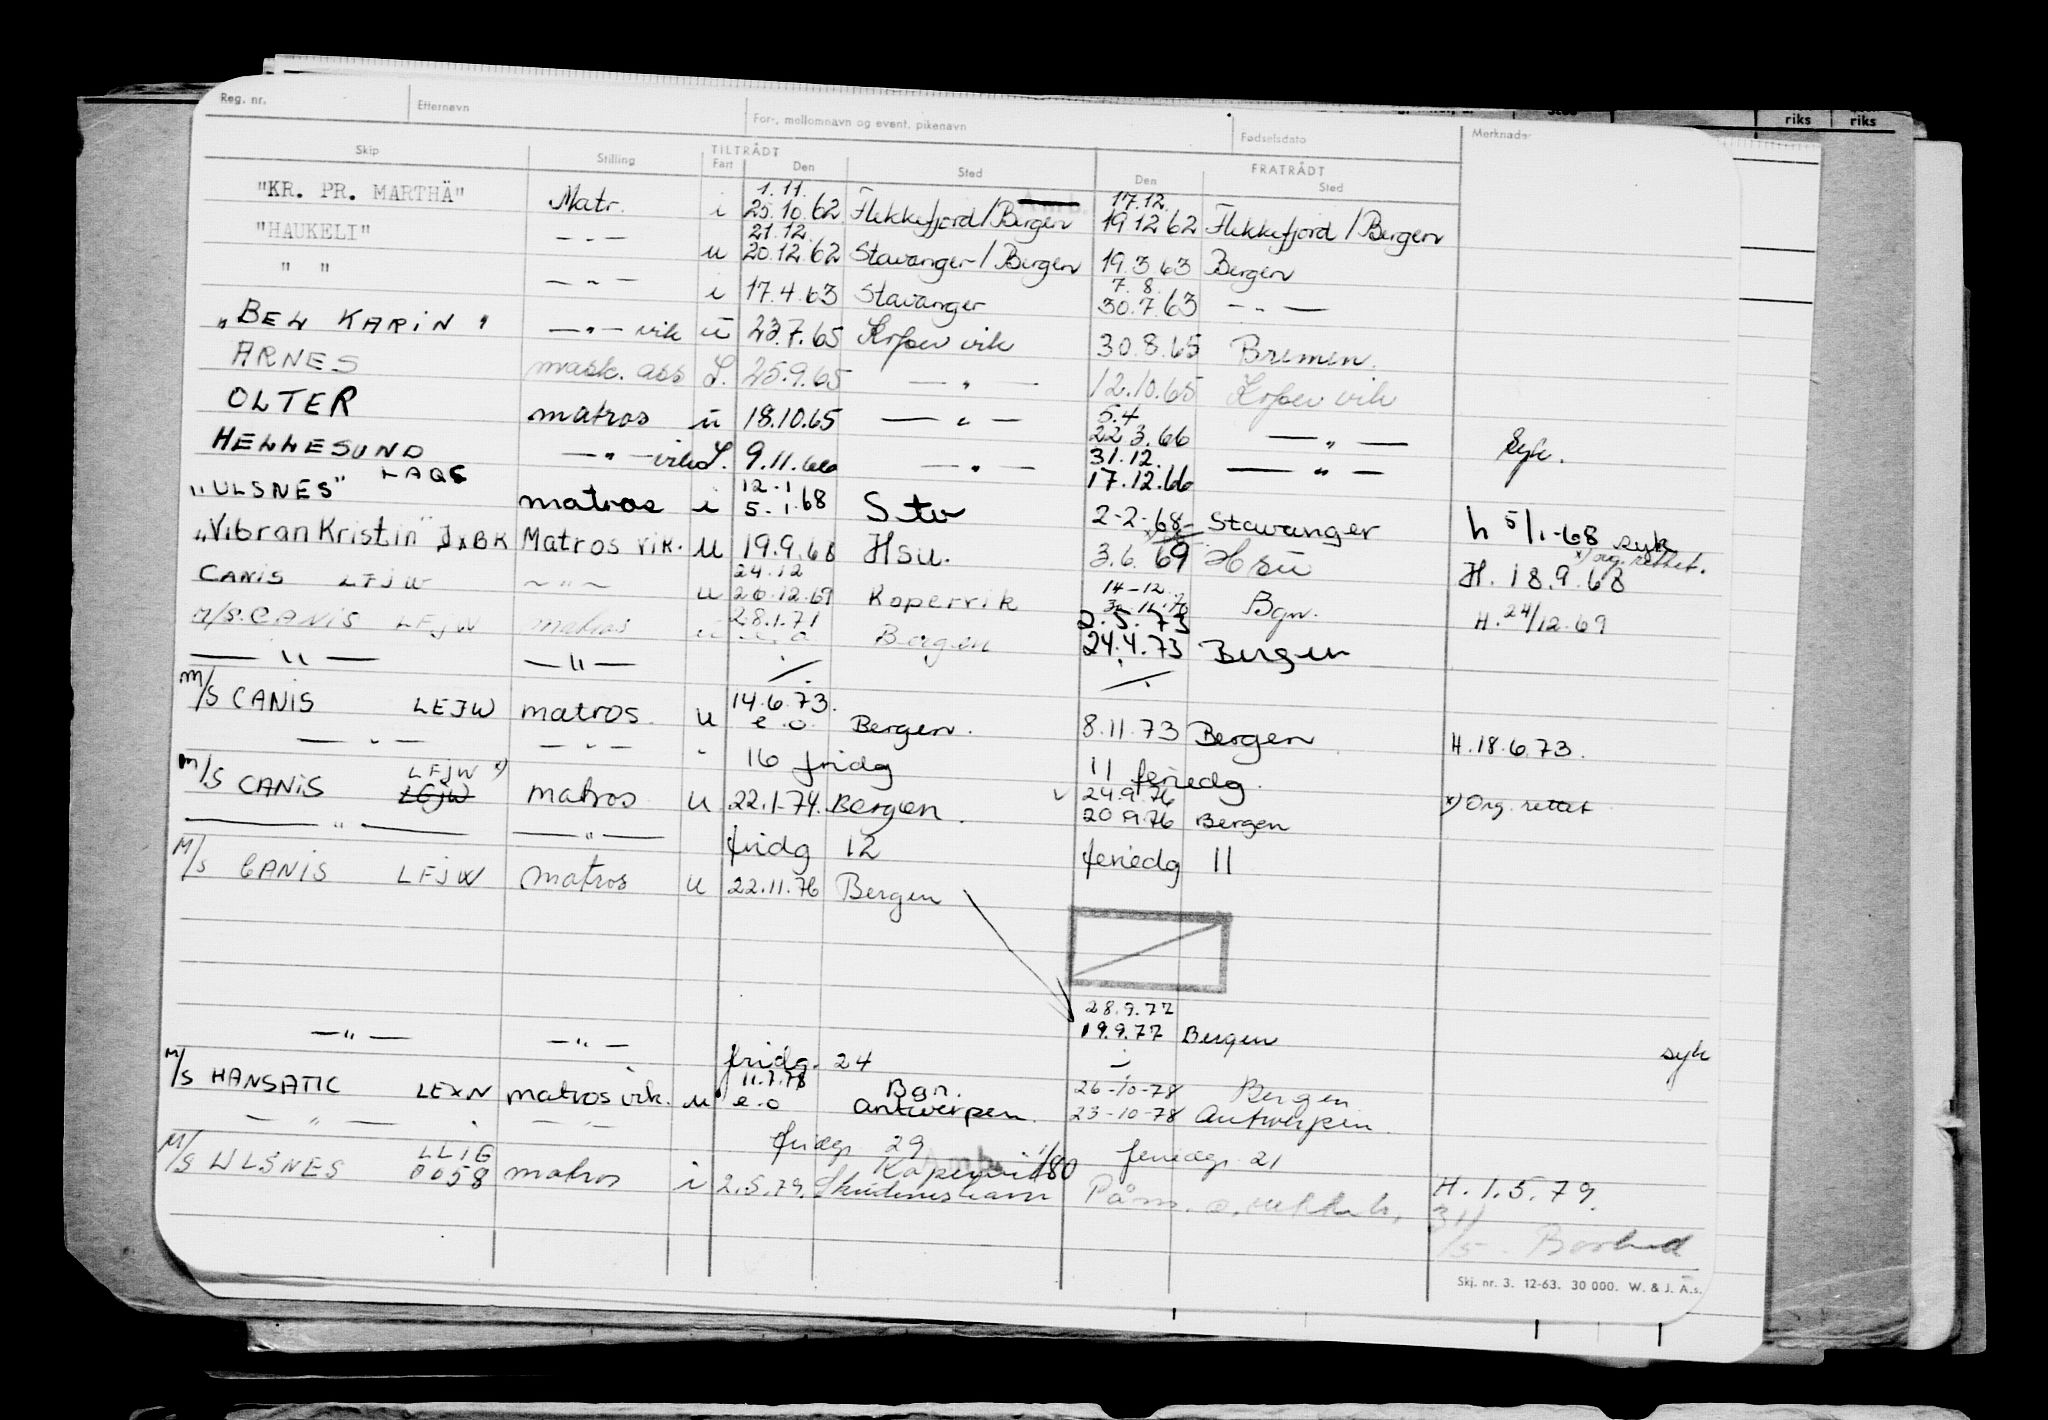 riks riks
Reg. nr. Etternavn For-, mellomnavn og event. pikenavn Fødselsdato Merknader
Skip Stilling TILTRÅDT Fart Den Sted FRATRÅDT Den Sted
1.11. 17.12.
"KR. PR. MARTHÄ" Matr. i 25.10.62 Flekkefjord/Bergen 19.12.62 Flekkefjord/Bergen
21.12.
"HAUKELI" — " — u 20.12.62 Stavanger/Bergen 19.3.63 Bergen
7.8.
" " — " — i 17.4.63 Stavanger 30.7.63 — " —
"BEL KARIN" — " — vik u 23.7.65 Kopervik 30.8.65 Bremen.
ARNES mask. ass L. 25.9.65 — " — 12.10.65 Kopervik
5.4
OLTER matros u 18.10.65 — " — 22.3.66 — " — Syk.
31.12.
HELLESUND — " — vik L. 9.11.66 — " — 17.12.66 — " —
LAQC 12.1
"ULSNES" matros i 5.1.68 Stv 2-2-68 Stavanger h 5/1-68 syk
x) org. rettet.
"Vibran Kristin" JXBK Matros vik. u 19.9.68 Hsu. 3.6.69 Hsu H. 18.9.68
24.12 14-12
CANIS LFJW — " — u 26.12.69 Kopervik Bgn. H. 24/12.69
28.1.71 2.5.73
M/S. CANIS LFJW matros u Bergen 24.4.73 Bergen
— " — — " — ./. ./.
14.6.73.
M/S CANIS LEJW matros u e.o. Bergen. 8.11.73 Bergen H.18.6.73.
— " — — " — " 16 fridg 11 feriedg.
LFJW x) 24.9.76
M/S CANIS LEJW matros u 22.1-74. Bergen. 20.9.76 Bergen x) Org. rettet
— " — — " — fridg 12 feriedg 11
M/S CANIS LFJW matros u 22.11.76 Bergen
28.9.77
19.9.77 Bergen
— " — — " — fridg. 24 syk
11.7.78 Bgn. 26-10-78 Bergen
M/S HANSATIC LEXN matros vik. u e.o Antwerpen. 23-10-78 Antwerpen.
— " — — " — fridg. 29 feriedg. 21
LLIG Kopervik 1/80
M/S ULSNES 0058 matros i 2.5.79. Skudeneshavn Påm. H. 1.5.79.
31/5
Skj. nr. 3. 12-63. 30 000. W. & J. A.s.